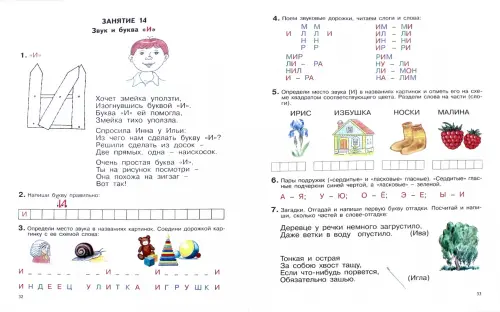 ЗАНЯТИЕ 14
Звук и буква «И»
1. «И»
Хочет змейка уползти,
Изогнувшись буквой «И».
Буква «И» ей помогла,
Змейка тихо уползла.
Спросила Инна у Ильи:
Из чего нам сделать букву «И»?
Решили сделать из досок –
Две прямых, одна – наискосок.
Очень простая буква «И»,
Ты на рисунок посмотри –
Она похожа на зигзаг –
Вот так!
2. Напиши букву правильно:
И
И
3. Определи место звука в названиях картинок. Соедини дорожкой кар-
тинку с ее схемой слова:
И _ _ _ _ _ _ И _ _ _ И _ _ _ _ _ И
ИНДЕЕЦ УЛИТКА ИГРУШКИ
32
4. Поем звуковые дорожки, читаем слоги и слова:
М М ИМ – МИ
И Л Л И ИЛ – ЛИ
Н Н ИН – НИ
Р Р ИР – РИ
МИР РИМ
ЛИ – РА НУ – ЛИ
НИЛ ЛИ – МОН
И – РА НА – ЛИМ
5. Определи место звука (И) в названиях картинок и отметь его на схе-
ме квадратом соответствующего цвета. Раздели слова на части (сло-
ги).
ИРИС ИЗБУШКА НОСКИ МАЛИНА
6. Пары подружек («сердитые» и «ласковые» гласные). «Сердитые» глас-
ные подчеркни синей чертой, а «ласковые» – зеленой.
А – Я; У – Ю; О – Ё; Э – Е; Ы – И
7. Загадки. Отгадай и напиши первую букву отгадки. Посчитай и напи-
ши, сколько частей в слове-отгадке:
Деревце у речки немного загрустило,
Даже ветки в воду опустило. (Ива)
Тонкая и острая
За собою хвост тащу,
Если что-нибудь порвется,
Обязательно зашью. (Игла)
33